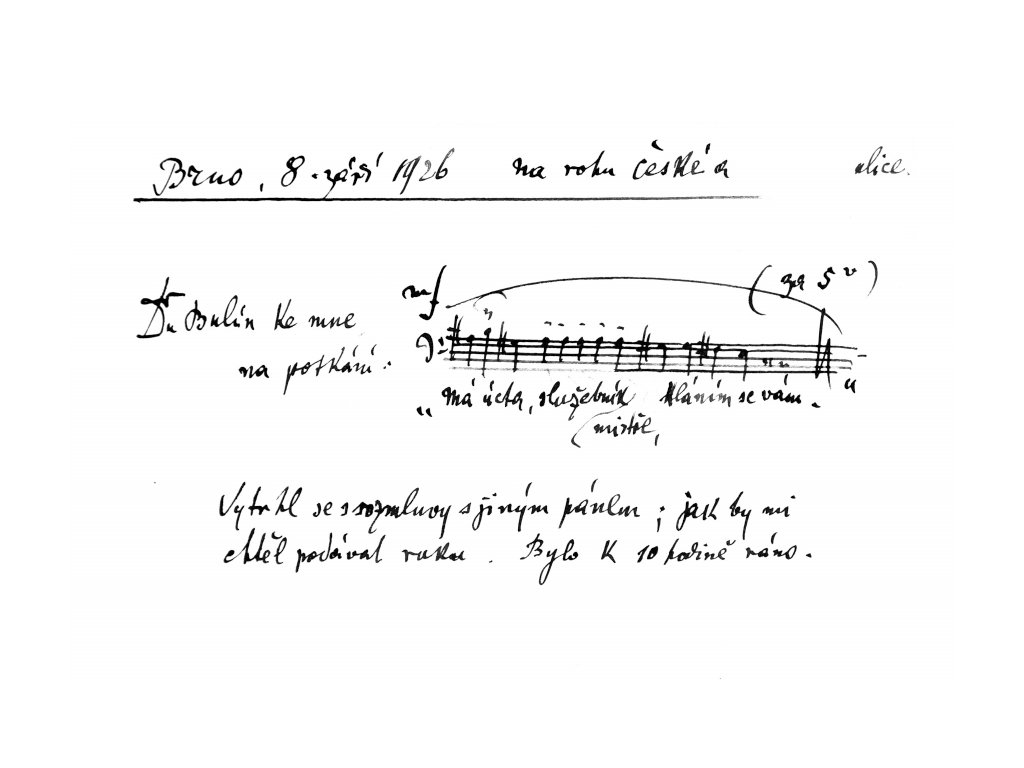 Brno, 8. září 1926 na rohu české a ulice.
mf
(za 5 v)
Dr Bulín ke mne
na potkání:
„Má úcta, služebník kláním se vám.“
mistře,
Vytrhl se s rozmluvy s jiným pánem; jak by mi
chtěl podávat ruku. Bylo k 10 hodině ráno.